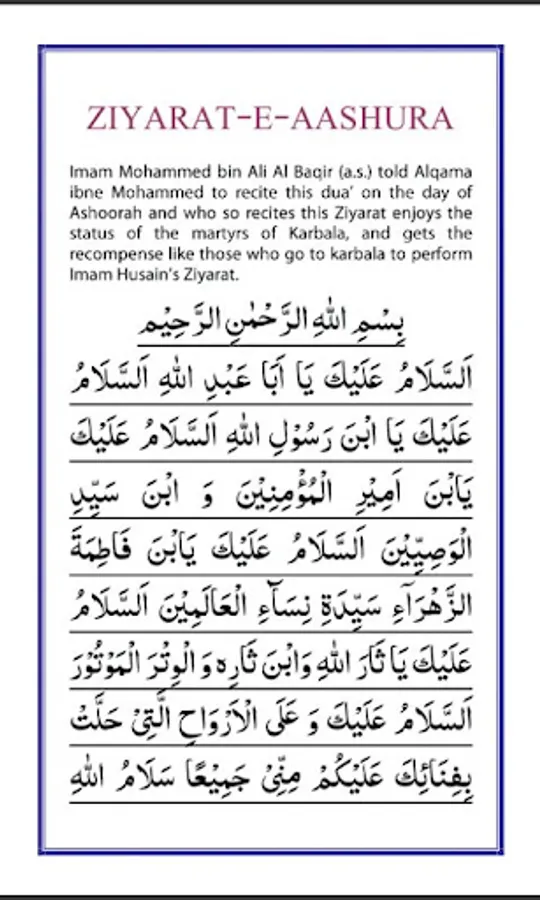 ZIYARAT-E-AASHURA
Imam Mohammed bin Ali Al Baqir (a.s.) told Alqama
ibne Mohammed to recite this dua' on the day of
Ashoorah and who so recites this Ziyarat enjoys the
status of the martyrs of Karbala, and gets the
recompense like those who go to karbala to perform
Imam Husain's Ziyarat.
بِسْمِ اللهِ الرَّحْمٰنِ الرَّحِيْمِ
اَلسَّلَامُ عَلَيْكَ يَا اَبَا عَبْدِ اللهِ اَلسَّلَامُ
عَلَيْكَ يَا ابْنَ رَسُوْلِ اللهِ اَلسَّلَامُ عَلَيْكَ
يَابْنَ اَمِيْرِ الْمُؤْمِنِيْنَ وَ ابْنَ سَيِّدِ
الْوَصِيِّيْنَ اَلسَّلَامُ عَلَيْكَ يَابْنَ فَاطِمَةَ
الزَّهْرَآءِ سَيِّدَةِ نِسَآءِ الْعَالَمِيْنَ اَلسَّلَامُ
عَلَيْكَ يَا ثَارَ اللهِ وَابْنَ ثَارِهِ وَ الْوِتْرَ الْمَوْتُوْرَ
اَلسَّلَامُ عَلَيْكَ وَ عَلَى الْاَرْوَاحِ الَّتِىْ حَلَّتْ
بِفِنَائِكَ عَلَيْكُمْ مِنِّىْ جَمِيْعًا سَلَامُ اللهِ